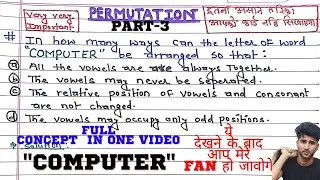 Very very Important
PERMUTATION
PART-3
इतना आसान तरीका
आपको कोई नहीं सिखाएगा
# In how many ways can the letter of word
"COMPUTER" be arranged so that:
a) All the vowels are always together.
b) The vowels may never be seperated.
c) The relative position of vowels and consonant
are not changed.
d) The vowels may occupy only odd positions.
Solution:
FULL
CONCEPT IN ONE VIDEO
"COMPUTER"
ये
देखने के बाद
आप मेरे
FAN हो जावोगे